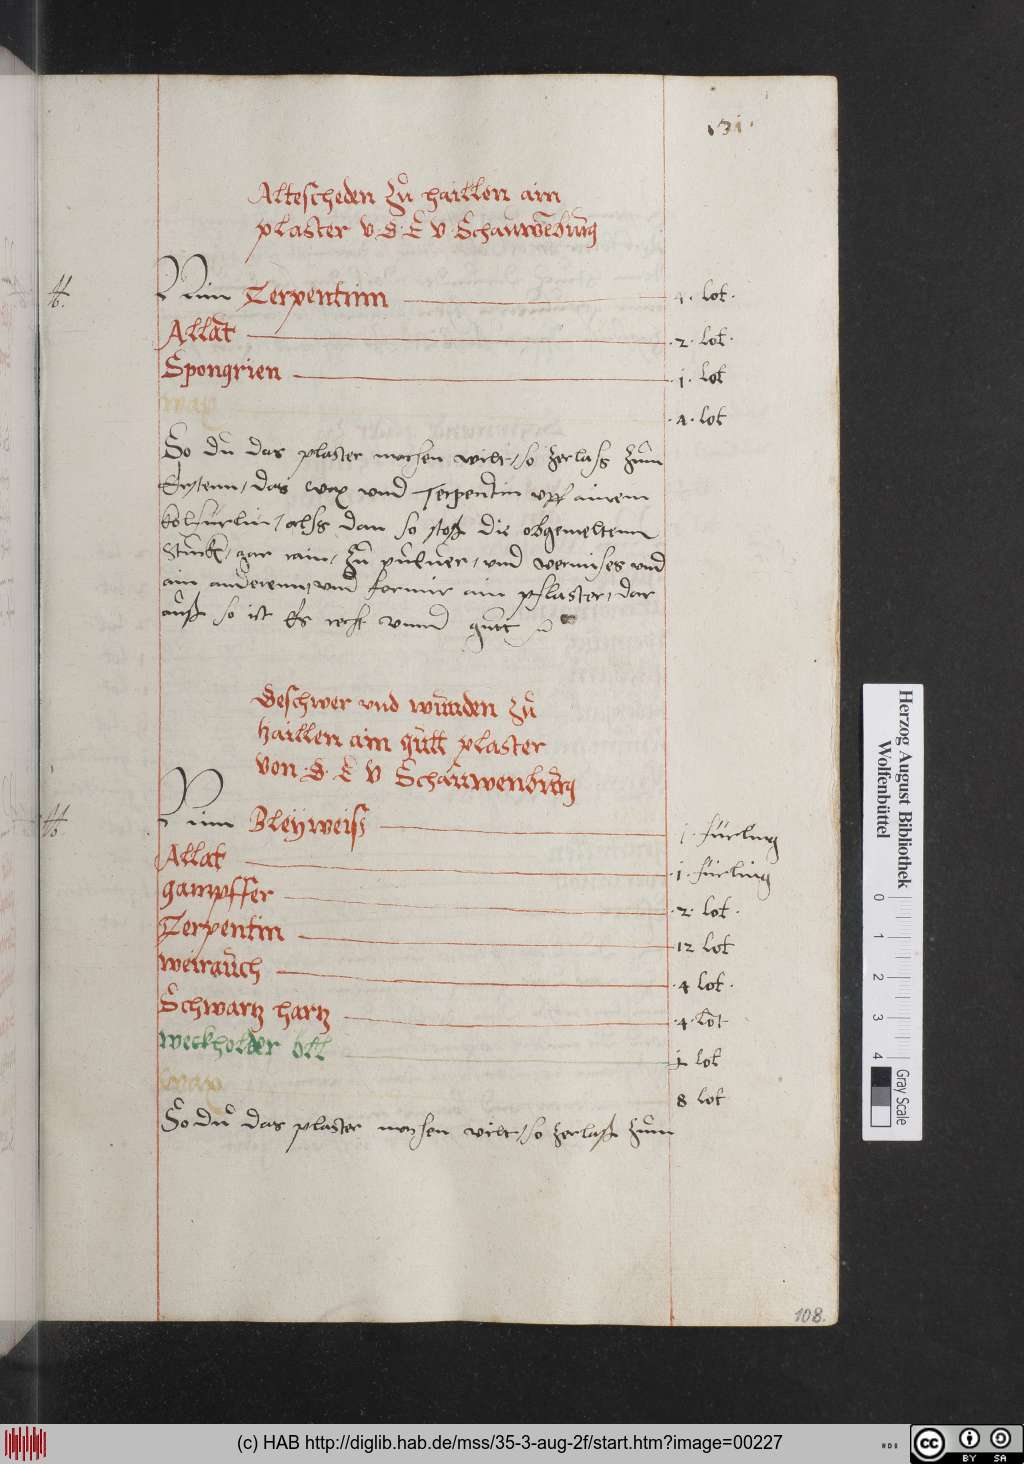 131.
Altescheden zů haillen ain
plaster v. D. E v Schauwenbürg
tt.
Nim Terpentinn 4. lot.
Allat .2. lot.
Spongrien .j. lot
wax .4. lot
So du das plaster machen wilt, so zerlaß zům
Ersten, das wax vnd Terpentin vff ainem
kolfürlin, alß dan so stoß die obgemelten
Stuckh, gar rain, zů puluer, vnd vermisch es vnd
ain anderenn, vnd formir ain pflaster, dar
auß so ist Es recht vnnd gůtt
Geschwer vnd wůnden zů
haillen ain gůtt plaster
von D. E v Schauwenbürg
tt.
Nim Bleÿweiß j. fürling
Allat .j. fürling
gampffer .2. lot.
Terpentin 12 lot
weirauch .4 lot.
Schwartz hartz .4. lot
weckholder öll 1 lot
wax 8 lot
So du das plaster machen wilt, so zerlaß zům
108.
Herzog August Bibliothek
Wolfenbüttel
0 1 2 3 4
Gray Scale
(c) HAB http://diglib.hab.de/mss/35-3-aug-2f/start.htm?image=00227
cc BY SA